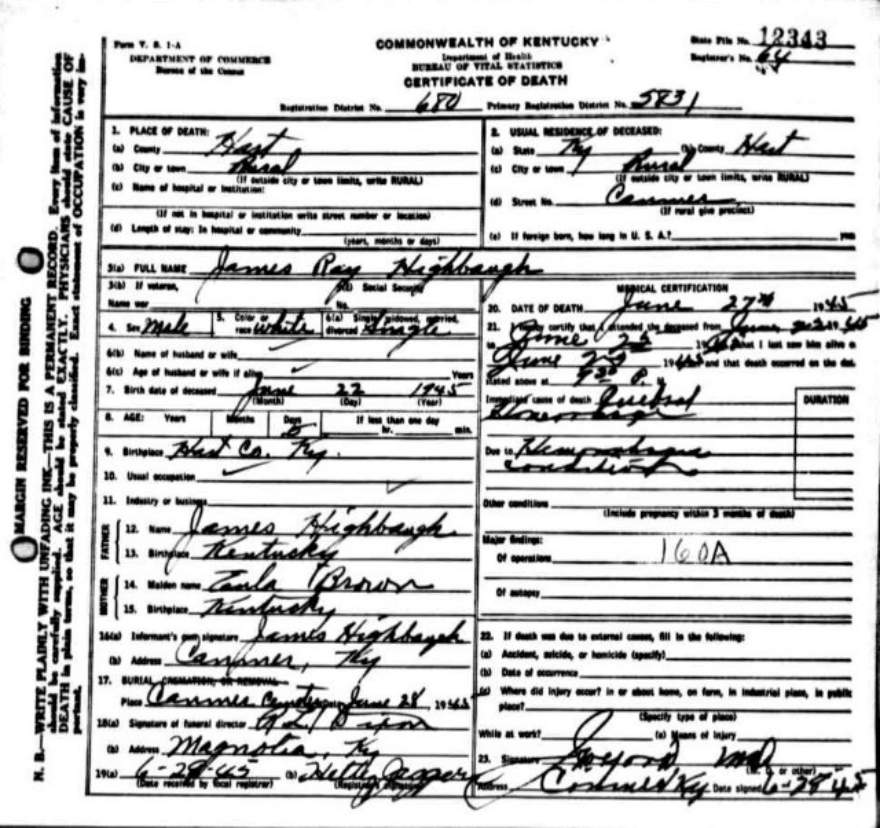 Form V. S. 1-A
DEPARTMENT OF COMMERCE
Bureau of the Census
COMMONWEALTH OF KENTUCKY
Department of Health
BUREAU OF VITAL STATISTICS
CERTIFICATE OF DEATH
State File No. 12343
Registrar's No. 64
Registration District No. 680 Primary Registration District No. 5831
1. PLACE OF DEATH:
(a) County Hart
(b) City or town Rural
(If outside city or town limits, write RURAL)
(c) Name of hospital or institution:
(If not in hospital or institution write street number or location)
(d) Length of stay: In hospital or community
(years, months or days)
2. USUAL RESIDENCE OF DECEASED:
(a) State Ky (b) County Hart
(c) City or town Rural
(If outside city or town limits, write RURAL)
(d) Street No. Canmer
(If rural give precinct)
(e) If foreign born, how long in U. S. A.? years
3(a) FULL NAME James Ray Highbaugh
3(b) If veteran, Social Security
Name war No.
4. Sex Male 5. Color or race white 6(a) Single, widowed, married, divorced Single
6(b) Name of husband or wife
6(c) Age of husband or wife if alive Years
7. Birth date of deceased June 22 1945
(Month) (Day) (Year)
8. AGE: Years Months Days 5 If less than one day
hr. min.
9. Birthplace Hart Co. Ky.
10. Usual occupation
11. Industry or business
FATHER
12. Name James Highbaugh
13. Birthplace Kentucky
MOTHER
14. Maiden name Brown
15. Birthplace Kentucky
16(a) Informant's own signature James Highbaugh
(b) Address Canmer, Ky
17. BURIAL, CREMATION, OR REMOVAL
Place Canmer Cemetery June 28 1945
18(a) Signature of funeral director Dixon
(b) Address Magnolia, Ky
19(a) 6-28-45 (b)
(Date received by local registrar) (Registrar's signature)
MEDICAL CERTIFICATION
20. DATE OF DEATH June 27th 1945
21. I hereby certify that I attended the deceased from June 1945
to June 1945 that I last saw him alive on
June 1945 and that death occurred on the date
stated above at P. M
Immediate cause of death Cerebral
DURATION
Due to Hemorrhagic
condition
Other conditions
(Include pregnancy within 3 months of death)
Major findings:
Of operations 160A
Of autopsy
22. If death was due to external causes, fill in the following:
(a) Accident, suicide, or homicide (specify)
(b) Date of occurrence
(c) Where did injury occur? in or about home, on farm, in industrial place, in public
place?
(Specify type of place)
While at work? (e) Means of injury
23. Signature MD
(M. D. or other)
Address Canmer Ky Date signed 6-28-45
MARGIN RESERVED FOR BINDING
N. B.—WRITE PLAINLY WITH UNFADING INK—THIS IS A PERMANENT RECORD. Every item of information
should be carefully supplied. AGE should be stated EXACTLY. PHYSICIANS should state CAUSE OF
DEATH in plain terms, so that it may be properly classified. Exact statement of OCCUPATION is very im-
portant.